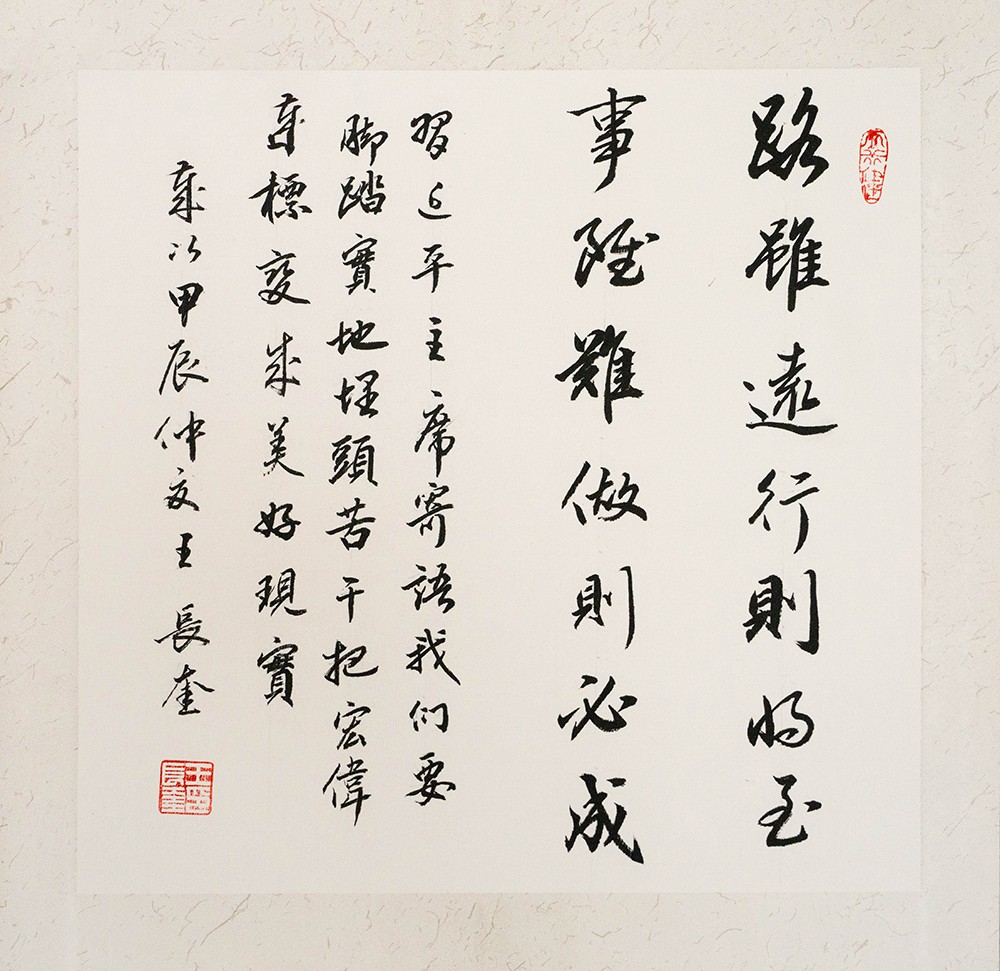 路雖遠行則将至
事雖難做則必成
習近平主席寄語我们要
脚踏實地埋頭苦干把宏偉
標變成美好現實
歲次甲辰仲夏王長奎